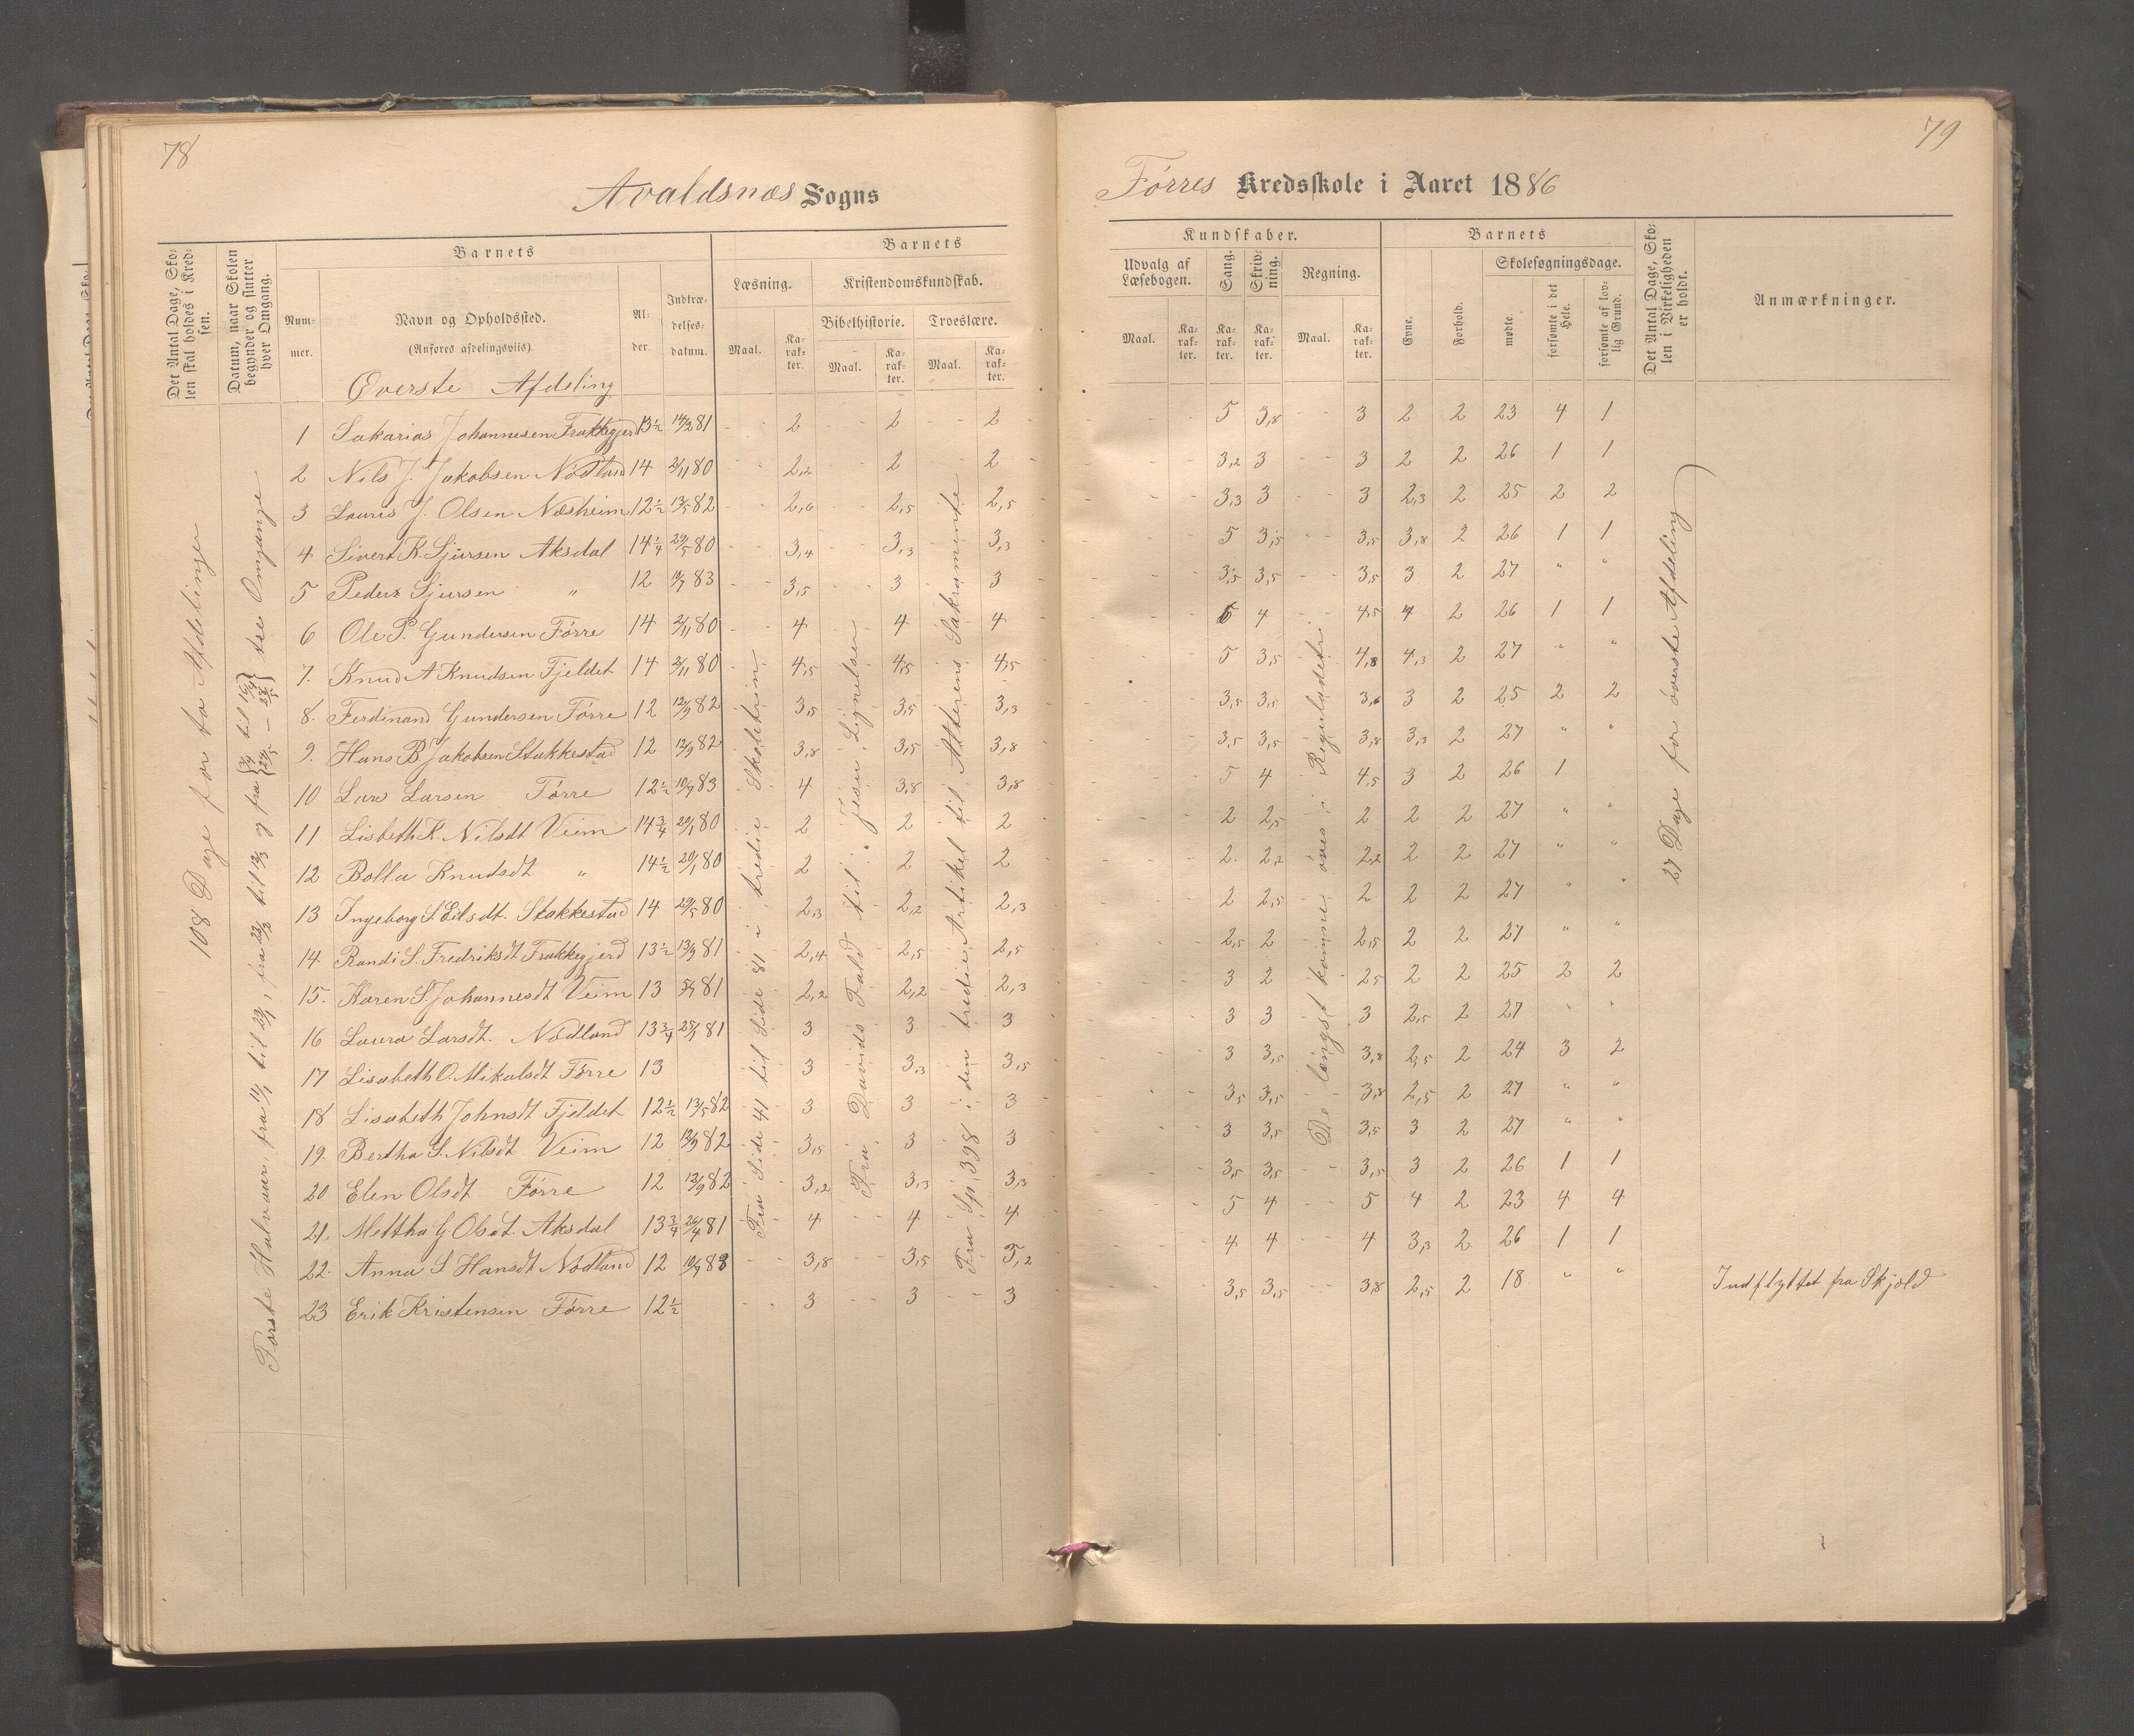 78
Avaldsnæs Sogns
Det Antal Dage, Skolen skal holdes i Kredsen.
Datum, naar Skolen begynder og slutter hver Omgang.
Barnets
Nummer.
Navn og Opholdssted.
(Anføres afdelingsviis)
Alder.
Indtrædelsesdatum.
Barnets
Læsning.
Maal.
Karakter.
Kristendomskundskab.
Bibelhistorie.
Maal.
Karakter.
Troeslære.
Maal.
Karakter.
Øverste Afdeling
108 Dage for to Afdelinger
Første Halvaar, fra 11/1 til 29/1, fra 22/2 til 13/3 og fra til 16/4 tre Omgange
1 Sakarias Johannesen Frakkegjerd 13½ 14/3 81 2 2 2
2 Nils J. Jakobsen Nødland 14 2/11 80 2,2 2 2
3 Laures J. Olsen Næsheim 12½ 13/5 82 2,6 2,5 2,5
4 Sivert K. Sjursen Aksdal 14¼ 29/5 80 3,4 3,3 3,3
5 Peder Sjursen " 12 10/9 83 3,5 3 3
6 Ole P. Gundersen Førre 14 2/11 80 4 4 4
7. Knud A Knudsen Fjeldet 14 2/11 80 4,5 4,5 4,5
8. Ferdinand Gundersen Førre 12 12/9 82 3,5 3,5 3,3
9. Hans B Jakobsen Stakkestad 12 12/9 82 3,8 3,5 3,8
10 Lars Larsen Førre 12½ 10/9 83 4 3,8 3,8
11 Lisbeth K. Nilsdt Veim 14¾ 20/1 80 2 2 2
12 Bolla Knudsdt " 14½ 20/1 80 2 2 2
13 Ingeborg S Eilsdt. Stakkestad 14 29/5 80 2,3 2,2 2,3
14. Randi S. Fredriksdt Frakkegjerd 13½ 13/9 81 2,4 2,5 2,5
15. Karen S. Johannesdt Veim 13 81 2,2 2,2 2,3
16 Laura Larsdt. Nødland 13¾ 81 3 3 3
17 Lisabeth O. Mikalsdt Førre 13 3 3,3 3,5
18 Lisabeth Johnsdt Fjeldet 12½ 13/5 82 3 3 3
19. Bertha S. Nilsdt Veim 12 12/9 82 3,5 3 3
20 Elen Olsdt Førre 12 12/9 82 3,2 3,3 3,3
21. Mettha G Olsdt. Aksdal 13¾ 26/4 81 4 4 4
22. Anna S Hansdt Nødland 12 10/9 83 3,8 3,5 3,2
23 Erik Kristensen Førre 12½ 3 3 3
Fra Side 41 til Side 81 i tredie Skoletrin
Fra Davids Fald til Jesu Lignelser
Fra Sp. 398 i den tredie Artikel til Alterens Sakramente
79
Førres Kredsskole i Aaret 1886
Kundskaber.
Udvalg af Læsebogen.
Maal.
Karakter.
Sang.
Karakter.
Skrivning.
Karakter.
Regning.
Maal.
Karakter.
Barnets
Evne.
Forhold.
Skolesøgningsdage.
mødte.
forsømte i det Hele.
forsømte af lovlig Grund.
Det Antal Dage, Skolen i Virkeligheden er holdt.
Anmærkninger.
5 3,8 3 2 2 23 4 1
3,2 3 3 2 2 26 1 1
3,3 3 3 2,3 2 25 2 2
5 3,5 3,5 3,8 2 26 1 1
3,5 3,5 3,5 3 2 27 " "
5 4 4,5 4 2 26 1 1
5 3,5 4,8 4,3 2 27 " "
3,5 3,5 3,6 3 2 25 2 2
3,5 3,5 3,8 3,3 2 27 " "
5 4 4,5 3 2 26 1
2 2,5 2 2 2 27 " "
2. 2,2 2,2 2 2 27 " "
2 2,5 2 2 2 27 " "
2,5 2 2,5 2 2 27 " "
3 2 2,5 2 2 25 2 2
3 3 3 2,5 2 27 " "
3 3,5 3,8 2,5 2 24 3 2
3,5 3,5 3,8 2,5 2 27 " "
3 3,5 3,5 3 2 27 " "
3,5 3,5 3,5 3 2 26 1 1
5 4 5 4 2 23 4 4
4 4 4 3,3 2 26 1 1
3,5 3,5 3,8 2,5 2 18 " " Indflyttet fra Skjold
De længst komne øves i Reguladetri
27 Dage for øverste Afdeling